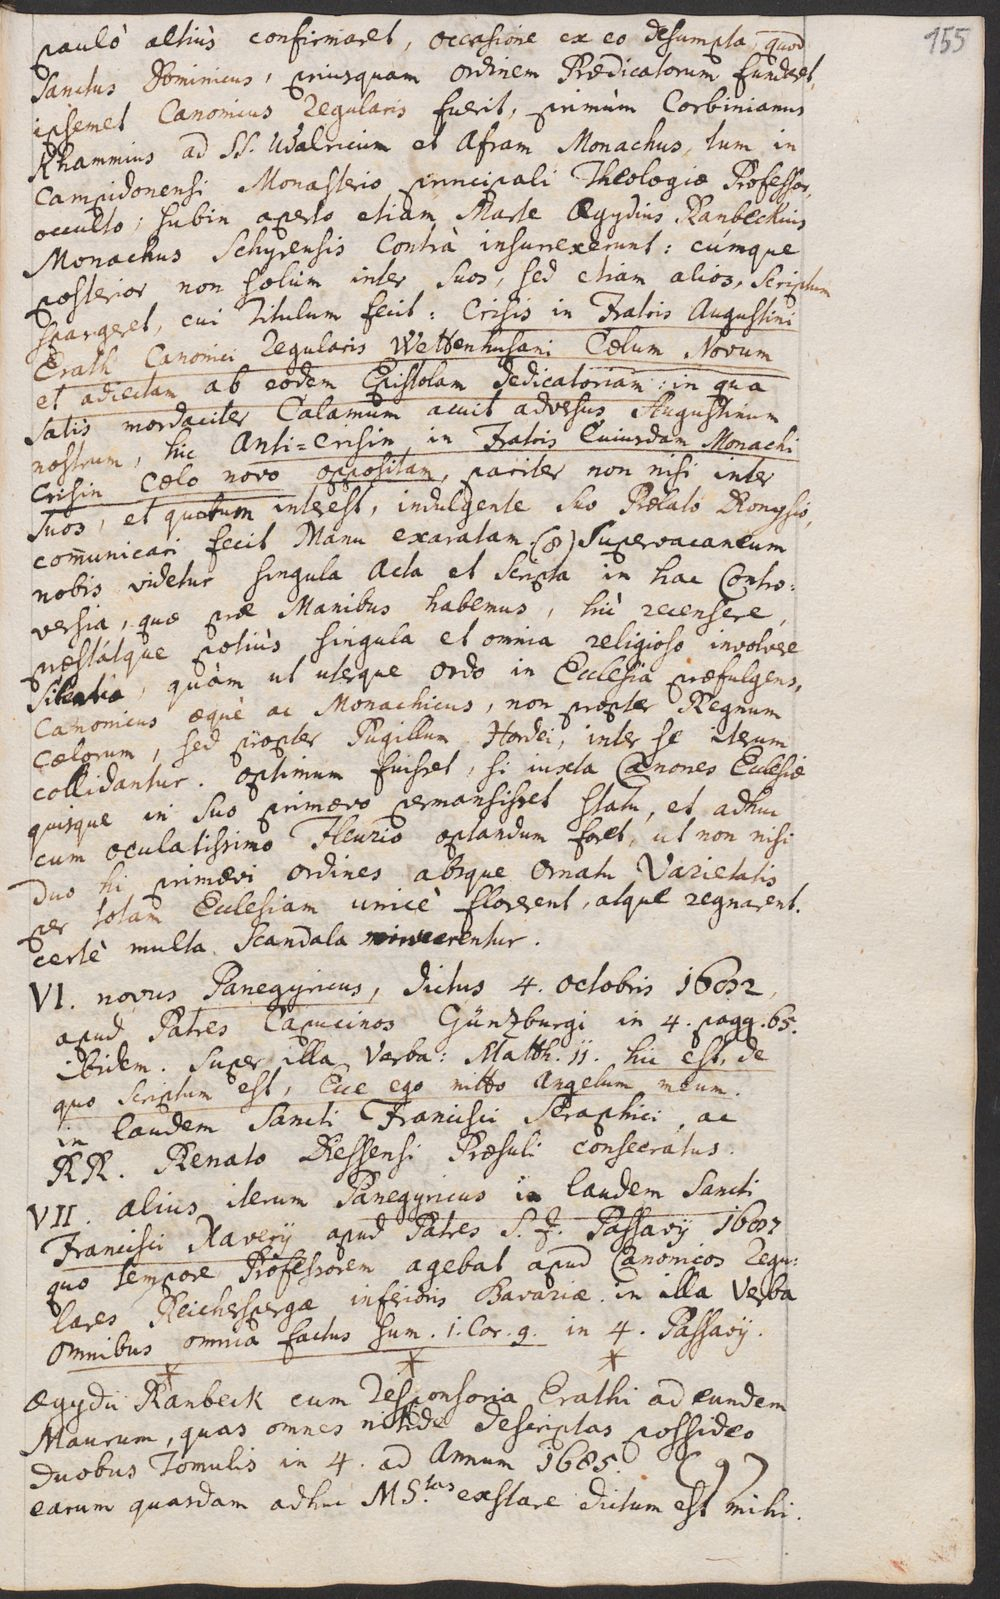 155
paulò altiùs confirmaret, occasione ex eo desumpta, quod
Sanctus Dominicus, priusquam ordinem Prædicatorum fundaret,
ipsemet Canonicus Regularis fuerit, primùm Corbinianus
Khammius ad SS. Udalricum et Afram Monachus, tum in
Campidonensi Monasterio principali Theologiæ Professor,
occulto; subin aperto etiam Marte Ægydius Ranbeckius
Monachus Schyrensis contrà insurrexerunt: cúmque
posterior non solùm inter suos, sed etiam alios, scriptum
spargeret, cui titulum fecit: Crisis in Fratris Augustini
Erath Canonici Regularis Wettenhusani Cœlum Novum
et adiectam ab eodem Epistolam dedicatoriam: in qua
satis mordaciter Calamum acuit adversus Augustinum
nostrum, hic Anti=Crisin in Fratris Cuiusdam Monachi
Crisin Cœlo novo oppositam, pariter non nisi inter
suos, et quotum interest, indulgente suo Prælato Dionysio,
com̄unicari fecit Manu exaratam. (8) Supervacaneum
nobis videtur singula Acta et Scripta in hac Contro=
versia, quæ præ Manibus habemus, hìc recensere,
præstátque potiùs singula et omnia religioso involvere
silentio, quàm ut uterque Ordo in Ecclesia præfulgens,
Canonicus æquè ac Monachicus, non propter Regnum
Cœlorum, sed propter Pugillum Hordei, inter se iterum
collidantur. Optimum fuisset, si iuxta Canones Ecclesiæ
quisque in suo primævo permansisset statu, et adhuc
cum oculatissimo Fleurio optandum foret, ut non nisi
duo hi primævi ordines absque ornatu Varietatis
per totam Ecclesiam unicè florerent, atque regnarent.
certè multa Scandala minuerentur.
VI. novus Panegyricus, dictus 4. Octobris 1692,
apud Patres Capucinos Günzburgi in 4. pagg. 65.
ibidem. Super illa Verba: Matth. 11. hic est, de
quo scriptum est, Ecce ego mitto Angelum meum.
in laudem Sancti Francisci Seraphici, ac
RR. Renato Diessensi Præsuli consecratus.
VII. alius iterum Panegyricus in laudem Sancti
Francisci Xaverij apud Patres S. J. Passavij 1697
quo tempore Professorem agebat apud Canonicos Regu:
lares Reicherspergæ inferioris Bavariæ. in illa Verba
Omnibus omnia factus sum. 1. Cor. 9. in 4. Passavij.
Ægydii Ranbeck cum responsoria Erathi ad eundem
Maurum, quas omnes nitide descriptas possideo
duobus Tomulis in 4. ad Annum 1685. (9)
earum quasdam adhuc MS.tas exstare dictum est mihi.